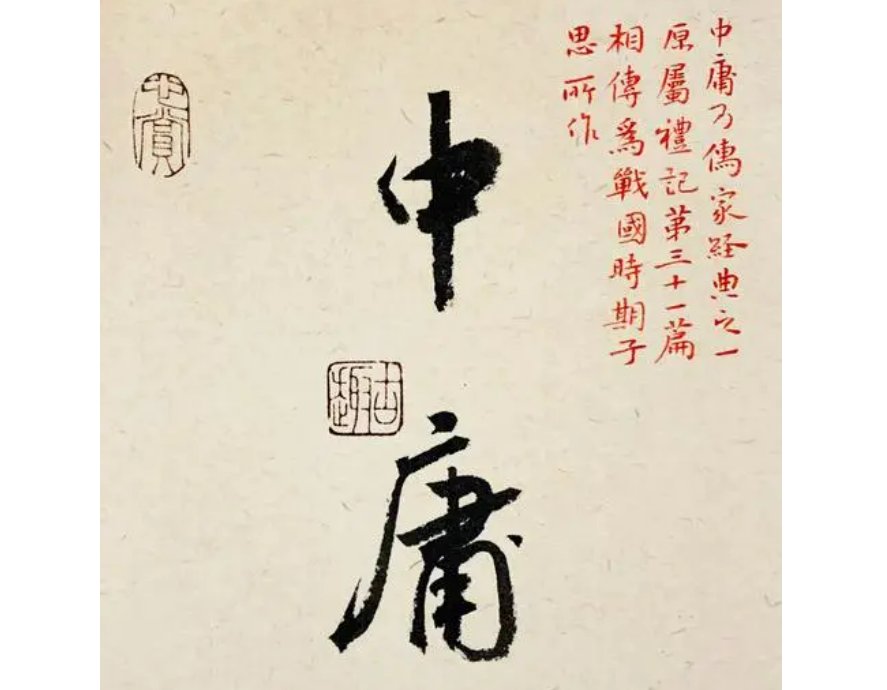 中庸乃儒家經典之一
原屬禮記第三十一篇
相傳爲戰國時期子
思所作
中庸
古趣